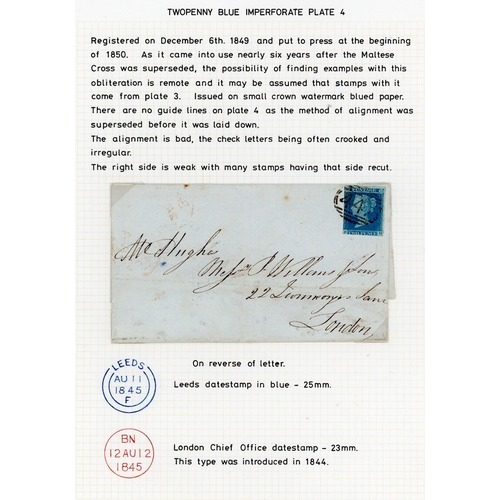 TWOPENNY BLUE IMPERFORATE PLATE 4
Registered on December 6th. 1849 and put to press at the beginning
of 1850. As it came into use nearly six years after the Maltese
Cross was superseded, the possibility of finding examples with this
obliteration is remote and it may be assumed that stamps with it
come from plate 3. Issued on small crown watermark blued paper.
There are no guide lines on plate 4 as the method of alignment was
superseded before it was laid down.
The alignment is bad, the check letters being often crooked and
irregular.
The right side is weak with many stamps having that side recut.
POSTAGE
TWO PENCE
Mr Hughes
Messrs J. Williams & Son,
22 Ironmonger Lane
London
On reverse of letter.
LEEDS
AU 11
1845
F
Leeds datestamp in blue - 25mm.
BN
12 AU 12
1845
London Chief Office datestamp - 23mm.
This type was introduced in 1844.